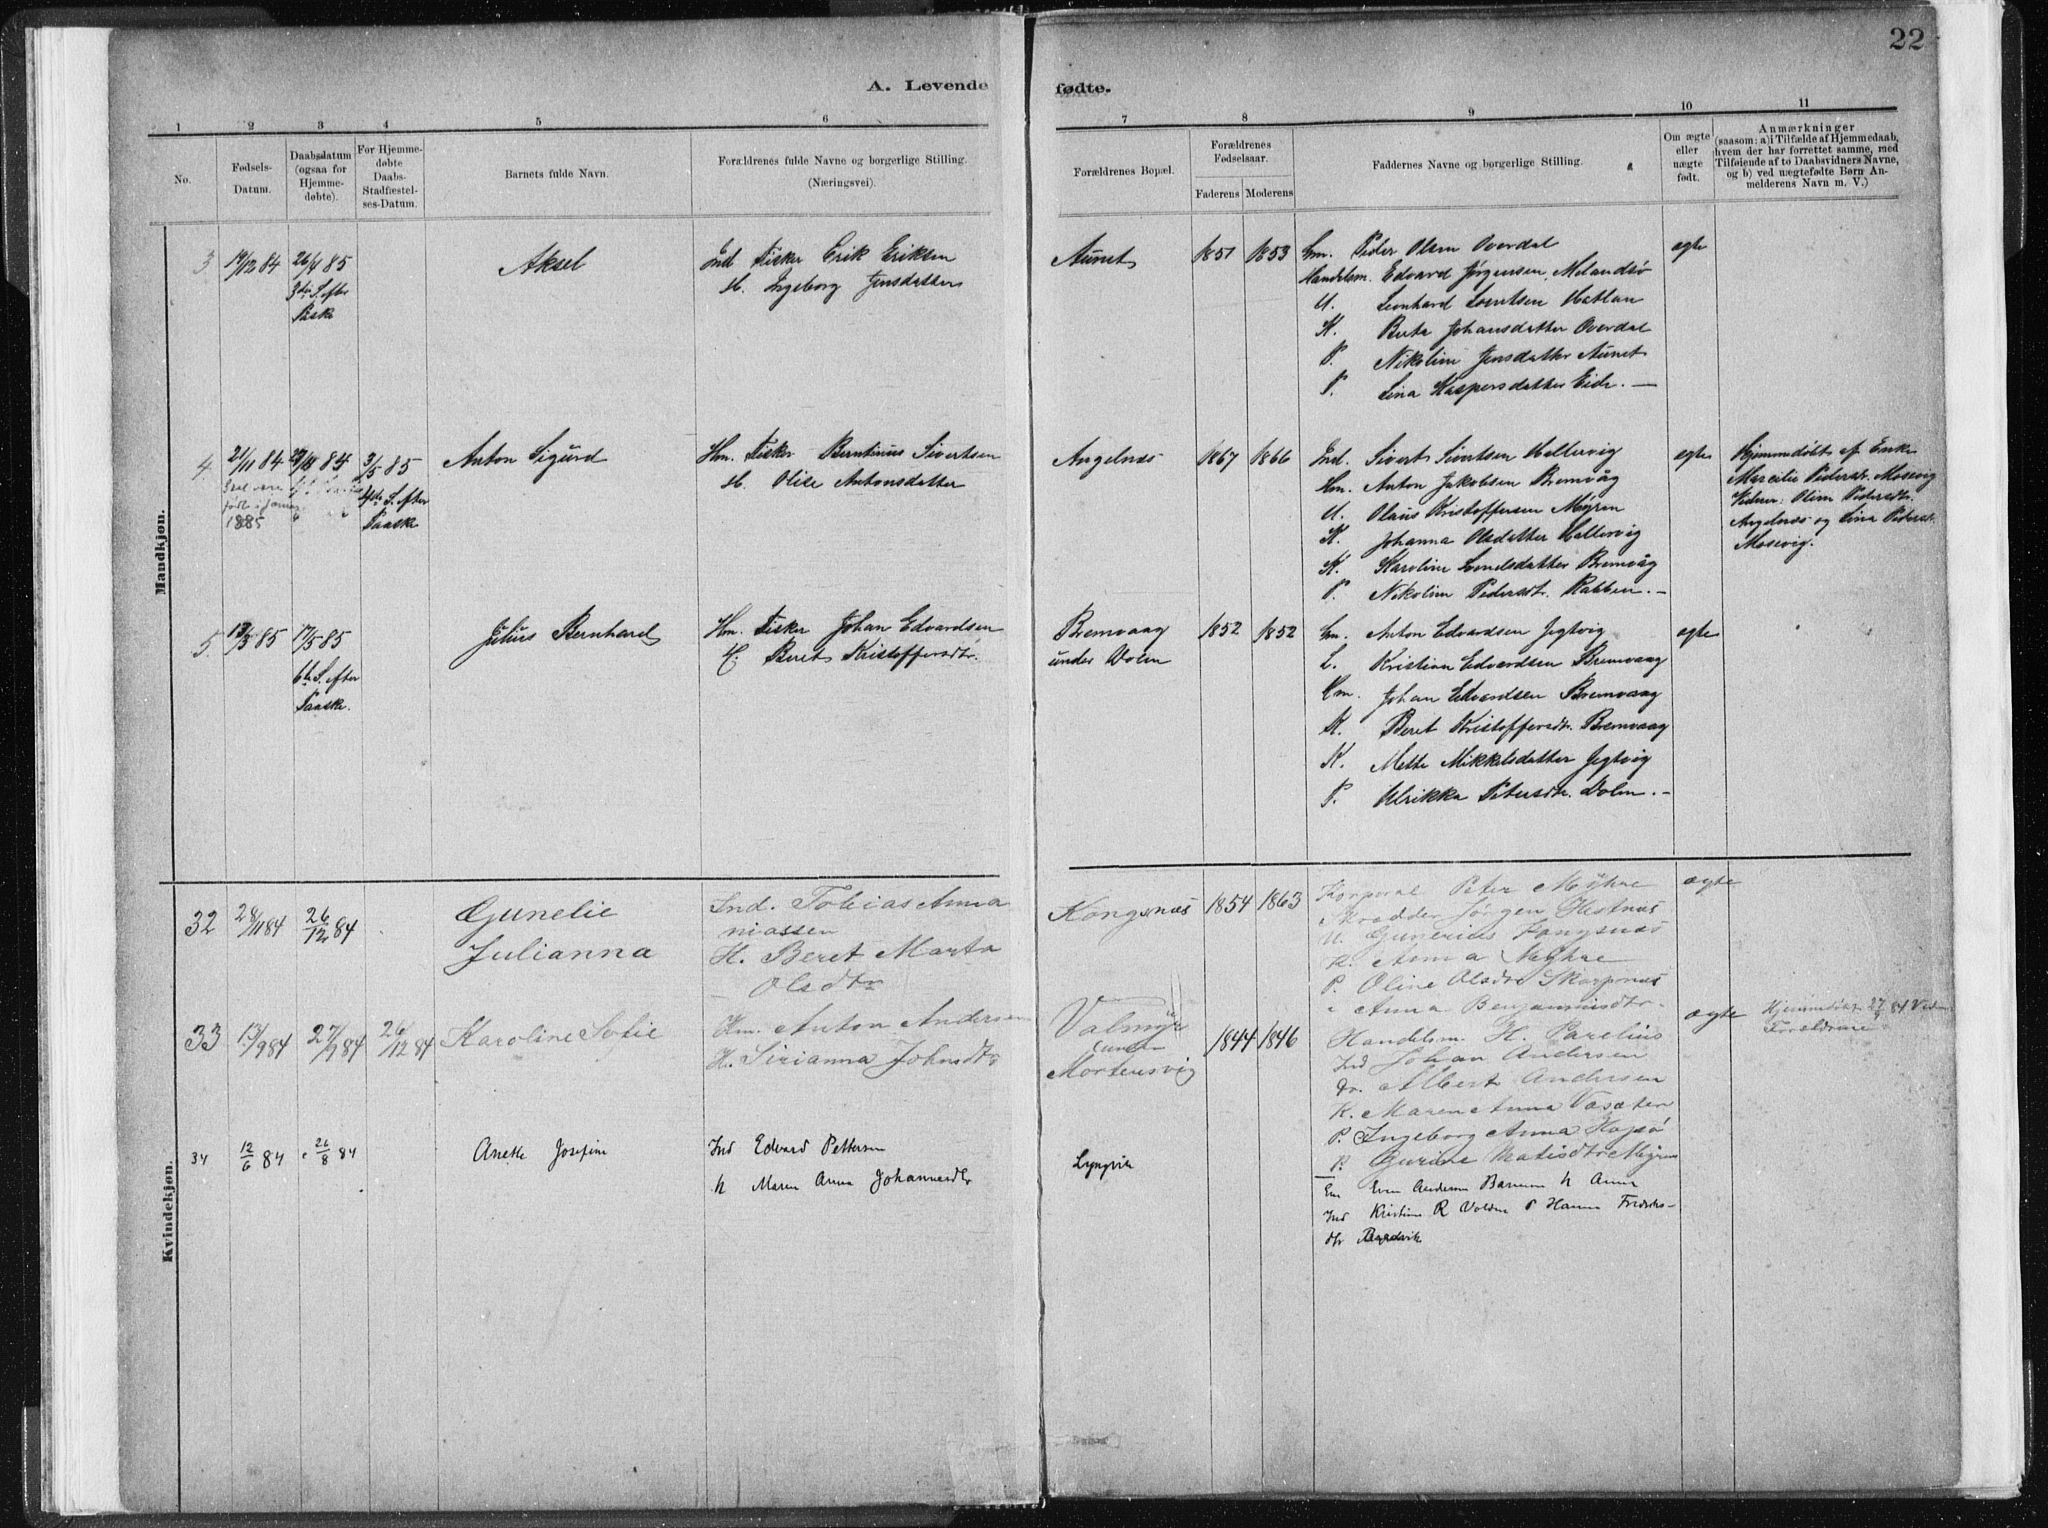 22
A. Levende fødte.
1 2 3 4 5 6 7 8 9 10 11
No.
Fødsels-
Datum.
Daabsdatum
(ogsaa for
Hjemme-
døbte).
For Hjemme-
døbte
Daabs-
Stadfæstel-
ses-Datum.
Barnets fulde Navn.
Forældrenes fulde Navne og borgerlige Stilling.
(Næringsvei).
Forældrenes Bopæl.
Forældrenes
Fødselsaar.
Faderens Moderens
Faddernes Navne og borgerlige Stilling.
Om ægte
eller
uægte
født.
Anmærkninger
(saasom: a) i Tilfælde af Hjemmedaab,
hvem der har forrettet samme, med
Tilføiende af to Daabsvidners Navne,
og b) ved uægtefødte Børn An-
melderens Navn m. V.)
Mandkjøn.
3.
14/12 84
26/4 85
3die S. efter
Paaske
Aksel
Ind Fisker Erik Eriksen
H. Ingeborg Jensdatter
Aunet
1851 1853
Gm. Peder Olsen Overdal
Handelsm. Edvard Jørgensen Melandsø
U. Leonhard Lorntsen Hatlan
K. Berta Johansdatter Overdal
P. Nikoline Jensdatter Aunet
P. Lina Kaspersdatter Eide. —
ægte
4.
21/11 84
Skal være
født i Januar
1885
84
3/5 85
4de S. efter
Paaske
Anton Sigurd
Hm. Fisker Berntinus Sivertsen
H. Olise Antonsdatter
Angelnæs
1867 1866
Ind. Sivert Sivertsen Hallervig
Hm. Anton Jakobsen Bremvåg
U. Olaus Kristoffersen Myren
K. Johanna Olsdatter Hallervig
K. Karoline Lornelsdatter Bremvåg
P. Nikoline Pedersdt. Rabben. —
ægte
Hjemmedøbt af Enke
Marcelie Pedersdt. Mosevig
Vidner: Oline Pedersdtr.
Angelnæs og Lina Pedersdt.
Mosevig.
5.
13/3 85
17/5 85
6te S. efter
Paaske.
Julius Bernhard
Hm. Fisker Johan Edvardsen
H. Beret Kristoffersdtr.
Bremvaag
under Dolm
1852 1852
Gm. Anton Edvardsen Jegtvig
L. Kristian Edvardsen Bremvaag
Hm. Johan Edvardsen Bremvaag
K. Beret Kristoffersdtr. Bremvaag
K. Mette Mikkelsdatter Jegtvig
P. Ulrikka Petersdtr. Dolm. —
ægte
Kvindekjøn.
32
28/11 84
26/12 84
Gunelie
Julianna
Ind. Tobias Anna
niassen
H. Beret Marta
Olsdtr
Kongsnæs
1854 1863
Korporal Peter Myhre
Skrædder Jørgen Hestnæs
U. Gunerius Kongsnæs
K. Anna Myhre
P. Oline Olsdtr Skarpnæs
" Anna Benjaminsdtr.
ægte
33
13/9 84
27/9 84
26/12 84
Karoline Sofie
Hm. Anton Andersen
H. Sirianna Johnsdtr
Valmyr
under
Mortensvig
1844 1846
Handelsm. H. Parelius
Ind Johan Andersen
Do. Albert Andersen
K. Maren Anna Vasæter
P. Ingeborg Anna Hopsø
P. Gurine Matisdtr Myren
ægte
Hjemmedøbt 27/9 84 Vidn
Forældrene
34
12/6 84
26/8 84
Anette Josefine
Ind Edvard Pettersen
H Maren Anna Johannesdtr
Lyngvik
Em Even Andersen H Anna
Ind Kristian R Volden P Hanna Fredriks-
dtr